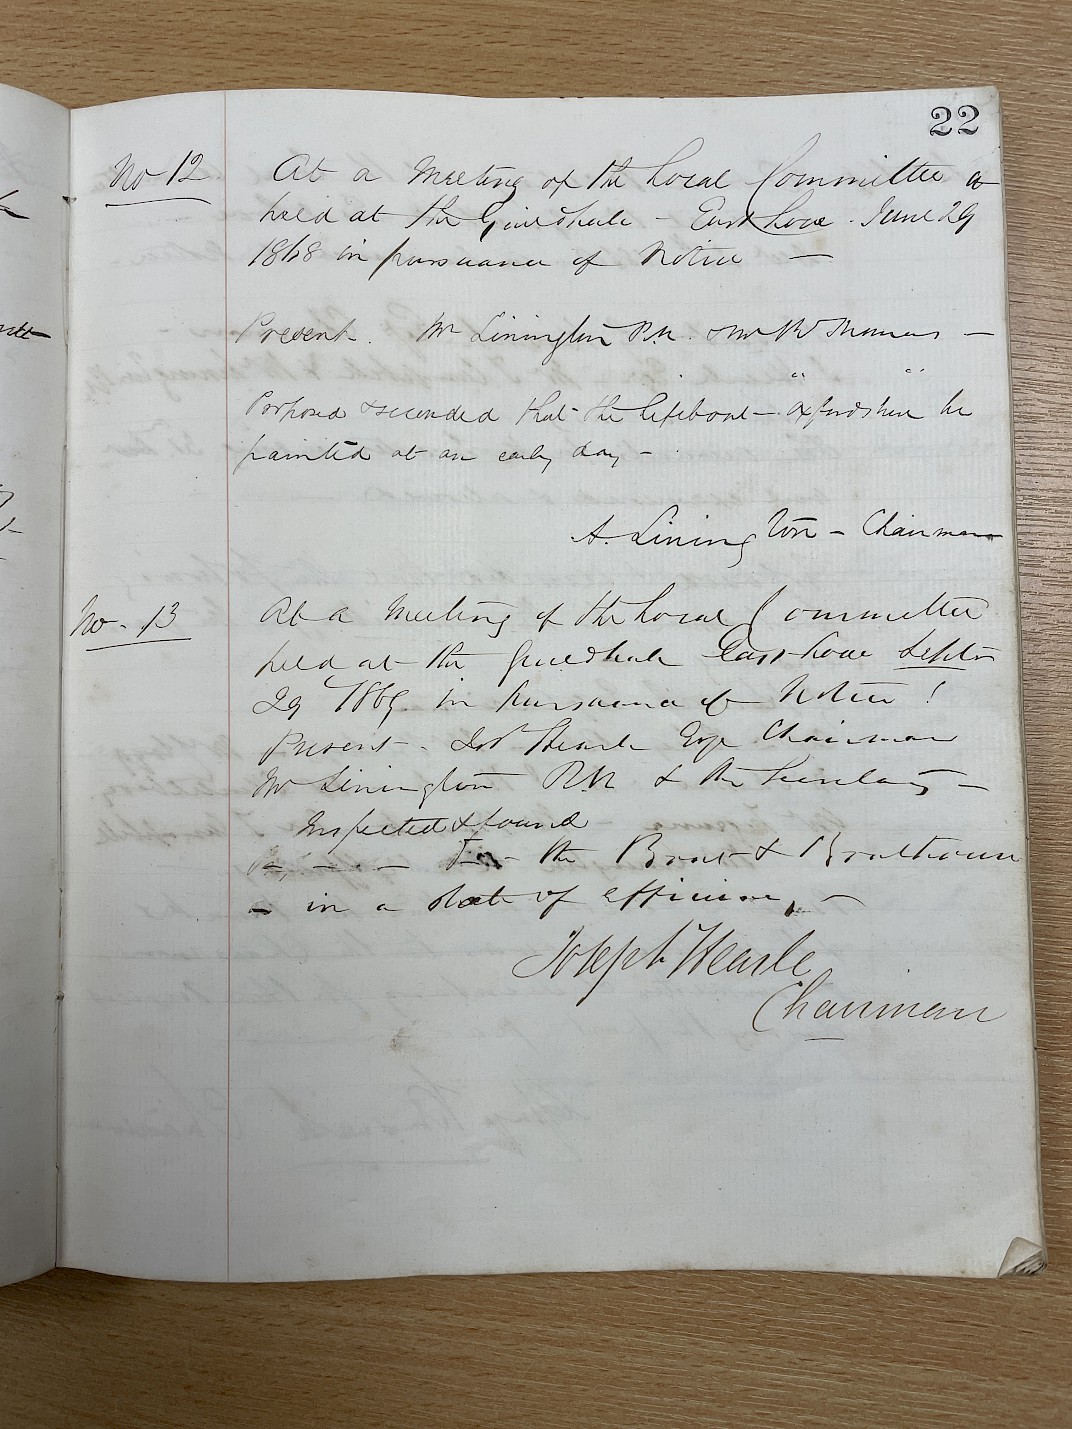 22
No 12 At a Meeting of the Local Committee
held at the Guildhall - East Looe - June 29
1868 in pursuance of Notice —
Present. Mr Linington R.N. Thomas —
Proposed & seconded that the Lifeboat - "Oxfordshire" be
painted at an early day -
A. Linington - Chairman
No. 13 At a Meeting of the Local Committee
held at the Guildhall East Looe Septr
29 1869 in pursuance of Notice!
Present - Hearle Esqr Chairman
Mr Linington R.N & the Secretary -
Inspected & found
- the Boat & Boathouse
- in a state of efficiency -
Joseph Hearle
Chairman